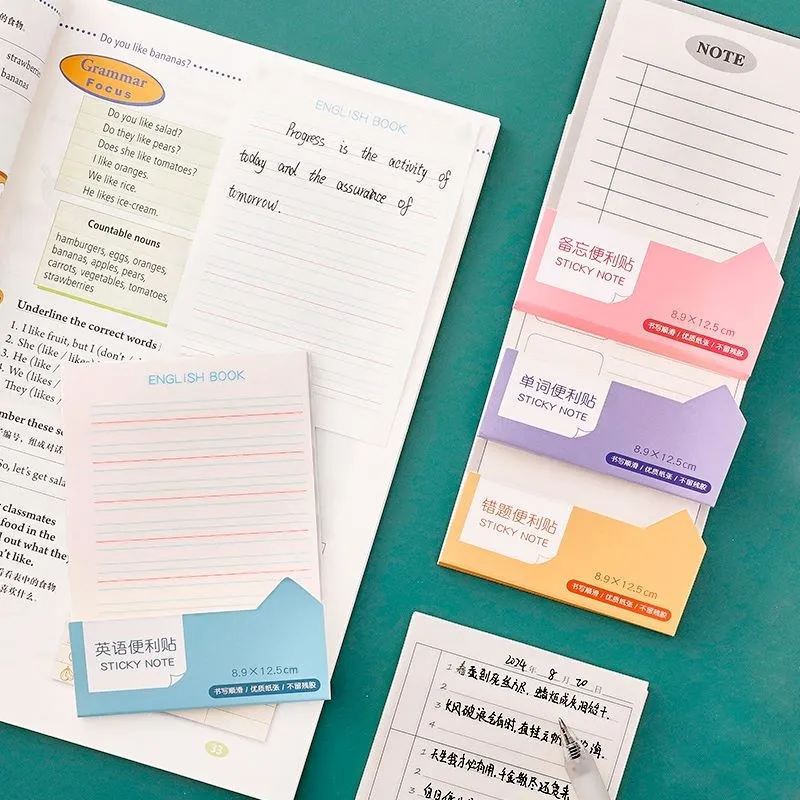 的食物。
strawberries
bananas
Do you like bananas?
Grammar
Focus
Do you like salad?
Do they like pears?
Does she like tomatoes?
I like oranges.
We like rice.
He likes ice-cream.
Countable nouns
hamburgers, eggs, oranges,
bananas, apples, pears,
carrots, vegetables, tomatoes,
strawberries
Underline the correct words
1. I like fruit, but I (don't /
2. She (like / likes)
3. He (like /
4. We (likes /
They (likes /
编号，组成对话
So, let's get salad
classmates
food in the
out what they
n't like.
看表中的食物
喜欢什么。
33
ENGLISH BOOK
Progress is the activity of
today and the assurance of
tomorrow.
ENGLISH BOOK
英语便利贴
STICKY NOTE
8.9×12.5cm
书写顺滑/优质纸张/不留残胶
NOTE
备忘便利贴
STICKY NOTE
8.9×12.5cm
书写顺滑/优质纸张/不留残胶
单词便利贴
STICKY NOTE
8.9×12.5cm
书写顺滑/优质纸张/不留残胶
错题便利贴
STICKY NOTE
8.9×12.5cm
书写顺滑/优质纸张/不留残胶
2024年8月20日
1 春蚕到死丝方尽，蜡炬成灰泪始干。
2
3 长风破浪会有时，直挂云帆济沧海。
4
1 天生我材必有用，千金散尽还复来
2
3